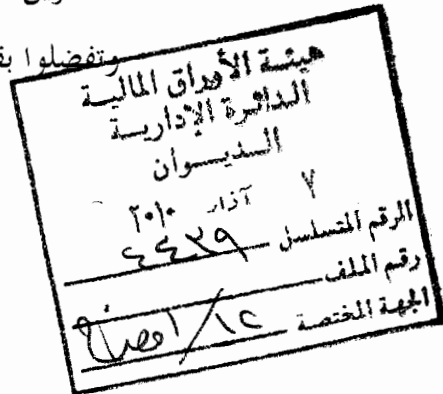 وتفضلوا بق
هيئة الأوراق المالية
الدائرة الإدارية
الديوان
٧ آذار ٢٠١٠
الرقم المتسلسل ٤٤٢٩
رقم الملف
الجهة المختصة ١٢/ افصاح